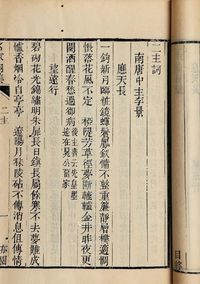 二主詞
南唐中主李景
應天長
一鉤新月臨粧鏡蟬鬢鳳釵慵不整重簾靜層樓迥惆
悵落花風不定 柳堤芳草徑夢斷轆轤金井昨夜更
闌酒醒春愁過却病
望遠行
碧砌花光錦繡明朱扉長日鎮長扃餘寒不去夢難成
爐香烟冷自亭亭 遼陽月秣陵砧不傳消息但傳情
二主